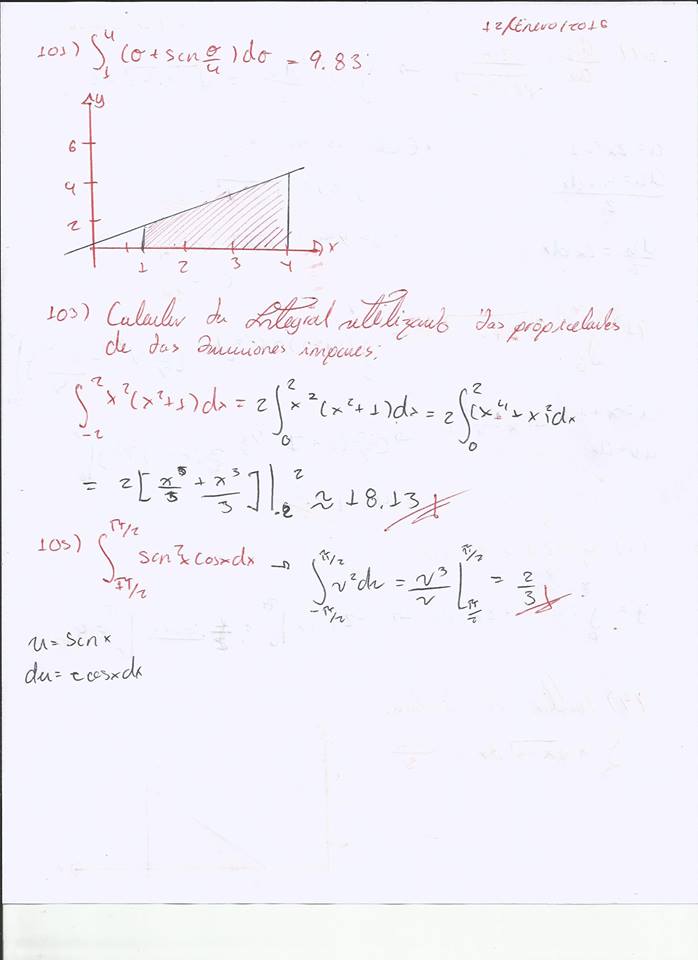 12/Enero/2016
101) ∫₁⁴ (σ + sen σ/4) dσ = 9.83
y
6
4
2
1 2 3 4 x
103) Calcular la Integral utilizando las propiedades
de las funciones impares;
∫₋₂² x²(x²+1)dx = 2∫₀² x²(x²+1)dx = 2∫₀² (x⁴+x)²dx
= 2[x⁵/5 + x³/3]|₋₂² ≈ 18.13
105) ∫ π/2 sen²x cosxdx → ∫₋π/2^π/2 u²du = u³/u |π/2^π/2 = 2/3
u = senx
du = cosxdx